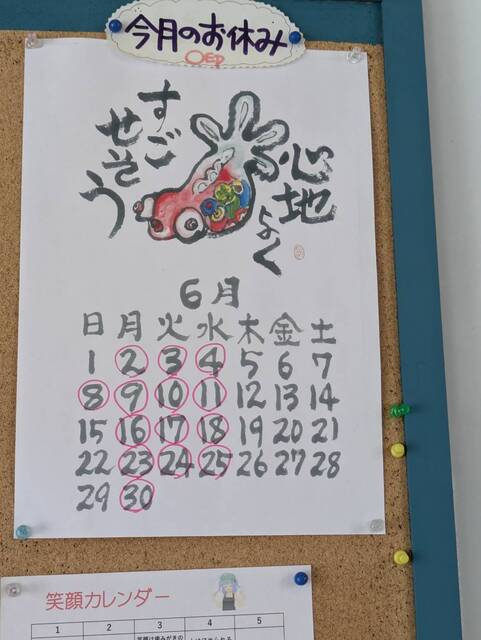 今月のお休み
心地よく
すごせそう
6月
日 月 火 水 木 金 土
1 2 3 4 5 6 7
8 9 10 11 12 13 14
15 16 17 18 19 20 21
22 23 24 25 26 27 28
29 30
笑顔カレンダー
1 2 3 4 5